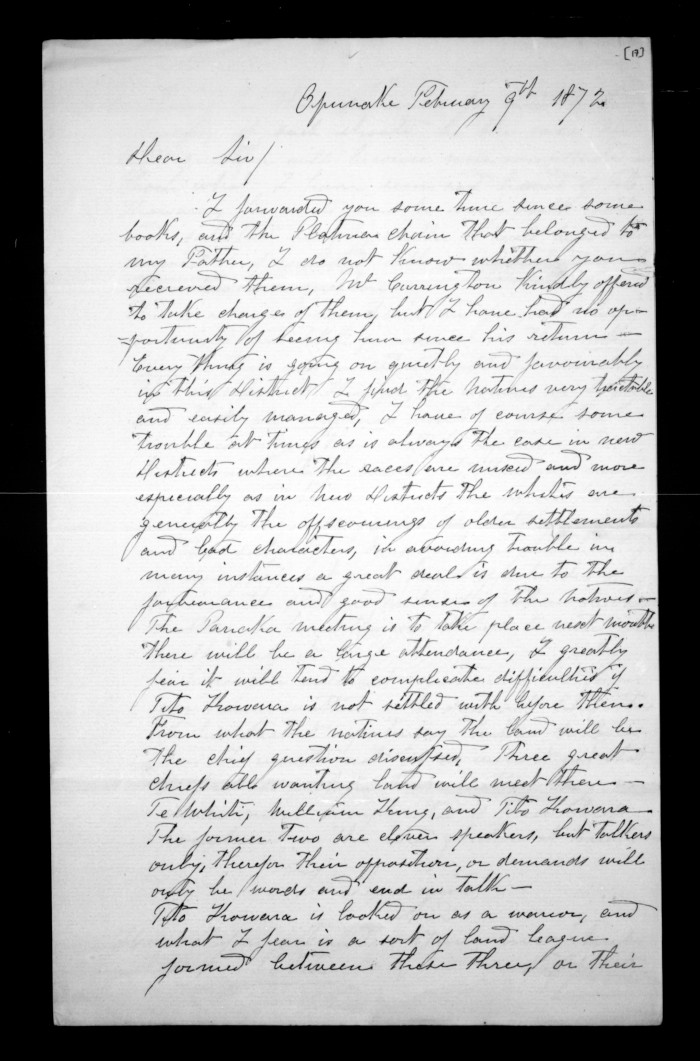 [17]
Opunake February 9th 1872
Dear Sir/
I forwarded you some time since some
books, and the Platina chain that belonged to
my Father, I do not know whether you
recieved them, Mr Carrington kindly offered
to take charge of them, but I have had no op-
-portunity of seeing him since his return -
Every thing is going on quietly and favourably
in this District, I find the natives very tractable
and easily managed, I have of course some
trouble at times as is always the case in new
Districts where the races are mixed and more
especially as in new Districts the whites are
generally the offscourings of older settlements
and bad characters, in avoiding trouble in
many instances a great deal is due to the
forbearance and good sense of the natives -
The Paraka meeting is to take place next month
there will be a large attendance, I greatly
fear it will tend to complicate difficulties if
Tito Kowara is not settled with before then.
From what the natives say the land will be
the chief question discussed, Three great
chiefs all wanting land will meet there -
Te Whiti, William King, and Tito Kowara
The former two are clever speakers, but talkers
only, therefor their opposition, or demands will
only be words and end in talk -
Tito Kowara is looked on as a warrior, and
what I fear is a sort of land league
formed between these three, or their